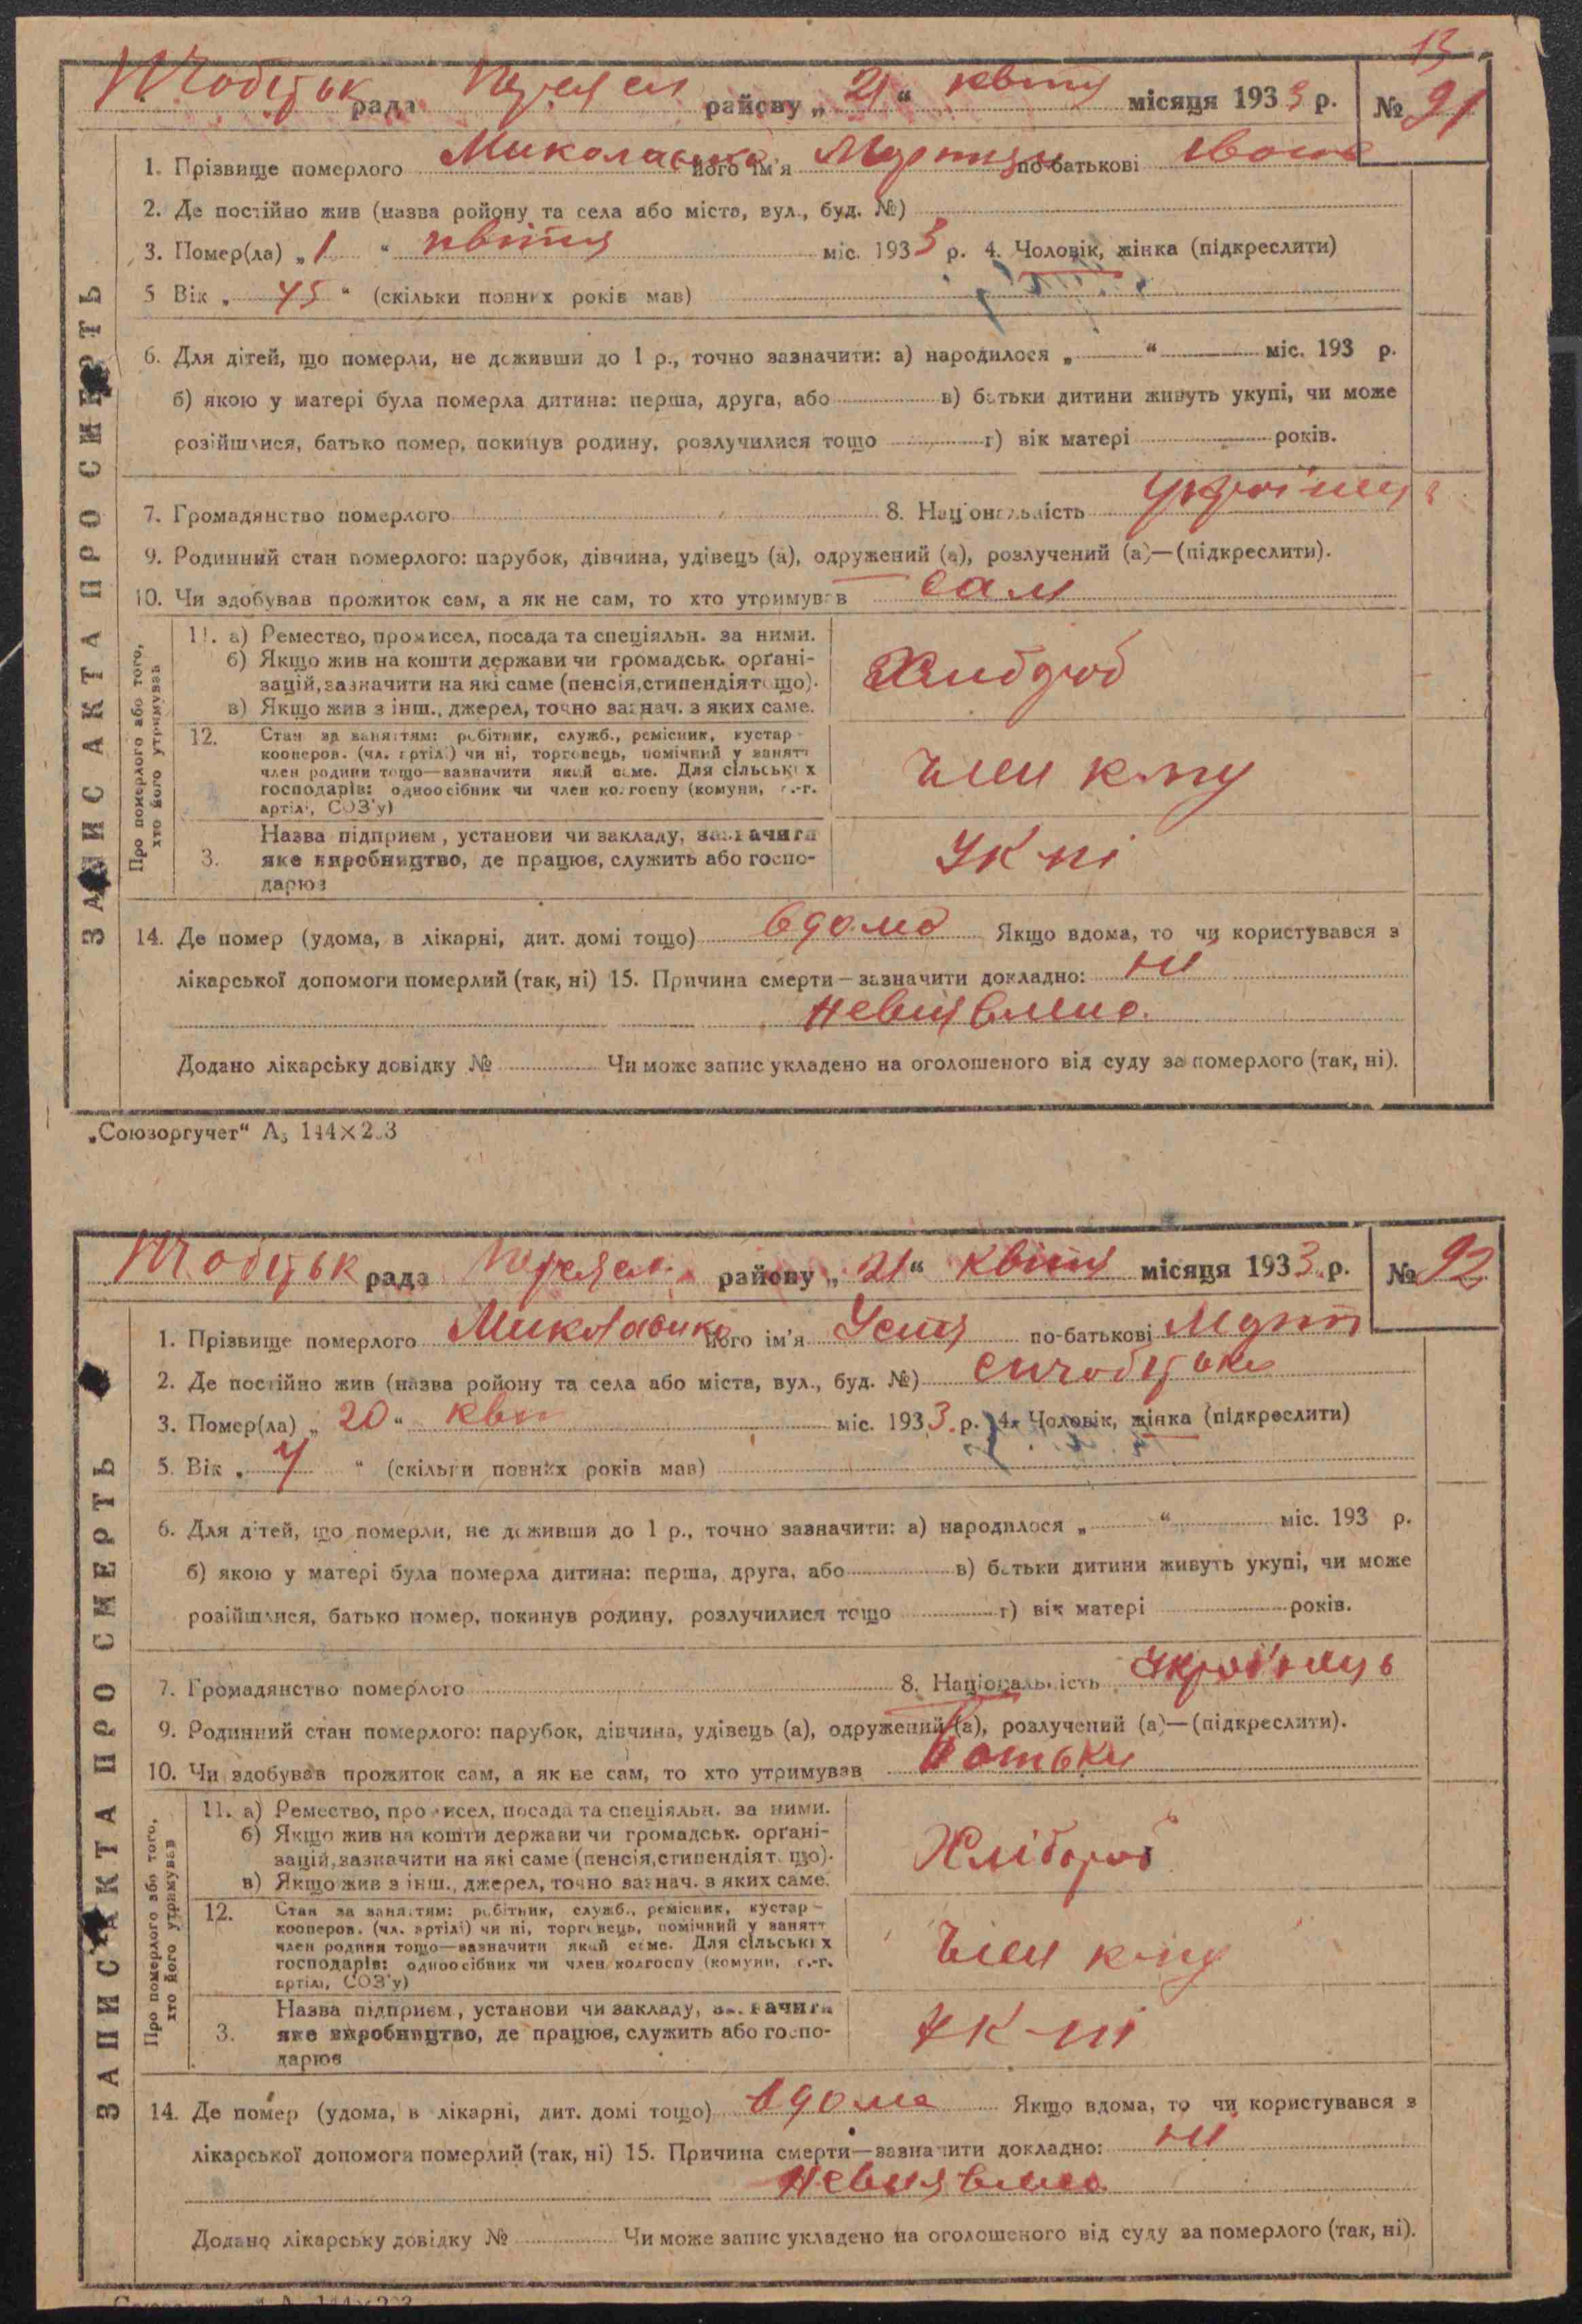 13
рада району „ 21 “ квітня місяця 1933 р. № 91
1. Прізвище померлого Миколаєнко його ім'я Мартин по-батькові Іванов
2. Де постійно жив (назва району та села або міста, вул., буд. №)
3. Помер(ла) „ 1 “ квітня міс. 1933 р. 4. Чоловік, жінка (підкреслити)
5 Вік „ 45 “ (скільки повних років мав)
6. Для дітей, що померли, не доживши до 1 р., точно зазначити: а) народилося „ “ міс. 193 р.
б) якою у матері була померла дитина: перша, друга, або в) батьки дитини живуть укупі, чи може
розійшлися, батько помер, покинув родину, розлучилися тощо г) вік матері років.
7. Громадянство померлого 8. Національність
9. Родинний стан померлого: парубок, дівчина, удівець (а), одружений (а), розлучений (а)—(підкреслити).
10. Чи здобував прожиток сам, а як не сам, то хто утримував сам
Про померлого або того,
хто його утримував
11. а) Ремество, промисел, посада та спеціяльн. за ними.
б) Якщо жив на кошти держави чи громадськ. орґані-
зацій, зазначити на які саме (пенсія, стипендія тощо).
в) Якщо жив з інш., джерел, точно зазнач. з яких саме.
Хлибороб
12. Стан за заняттям: робітник, служб., ремісник, кустар-
кооперов. (чл. артілі) чи ні, торговець, помічний у занятт
член родини тощо—зазначити який саме. Для сільських
господарів: одноосібник чи член колгоспу (комуни, с.-г.
артілі, СОЗ'у)
Член
3. Назва підприєм, установи чи закладу, зазначити
яке виробництво, де працює, служить або госпо-
дарює
14. Де помер (удома, в лікарні, дит. домі тощо) вдома Якщо вдома, то чи користувався з
лікарської допомоги померлий (так, ні) 15. Причина смерти—зазначити докладно: ні
невиявлено
Додано лікарську довідку № Чи може запис укладено на оголошеного від суду за померлого (так, ні).
ЗАПИС АКТА ПРО СМЕРТЬ
„Союзоргучет“ А5 144×203
рада району „ 21 “ квітня місяця 1933 р. № 92
1. Прізвище померлого Миколаєнко його ім'я Устя по-батькові Март
2. Де постійно жив (назва району та села або міста, вул., буд. №)
3. Помер(ла) „ 20 “ квіт міс. 1933 р. 4. Чоловік, жінка (підкреслити)
5. Вік „ “ (скільки повних років мав)
6. Для дітей, що померли, не доживши до 1 р., точно зазначити: а) народилося „ “ міс. 193 р.
б) якою у матері була померла дитина: перша, друга, або в) батьки дитини живуть укупі, чи може
розійшлися, батько помер, покинув родину, розлучилися тощо г) вік матері років.
7. Громадянство померлого 8. Національність
9. Родинний стан померлого: парубок, дівчина, удівець (а), одружений (а), розлучений (а)—(підкреслити).
10. Чи здобував прожиток сам, а як не сам, то хто утримував батьки
Про померлого або того,
хто його утримував
11. а) Ремество, промисел, посада та спеціяльн. за ними.
б) Якщо жив на кошти держави чи громадськ. орґані-
зацій, зазначити на які саме (пенсія, стипендія тощо).
в) Якщо жив з інш., джерел, точно зазнач. з яких саме.
Хлібороб
12. Стан за заняттям: робітник, служб., ремісник, кустар-
кооперов. (чл. артілі) чи ні, торговець, помічний у занятт
член родини тощо—зазначити який саме. Для сільських
господарів: одноосібник чи член колгоспу (комуни, с.-г.
артілі, СОЗ'у)
Член
3. Назва підприєм, установи чи закладу, зазначити
яке виробництво, де працює, служить або госпо-
дарює
14. Де помер (удома, в лікарні, дит. домі тощо) вдома Якщо вдома, то чи користувався з
лікарської допомоги померлий (так, ні) 15. Причина смерти—зазначити докладно: ні
невиявлено
Додано лікарську довідку № Чи може запис укладено на оголошеного від суду за померлого (так, ні).
ЗАПИС АКТА ПРО СМЕРТЬ